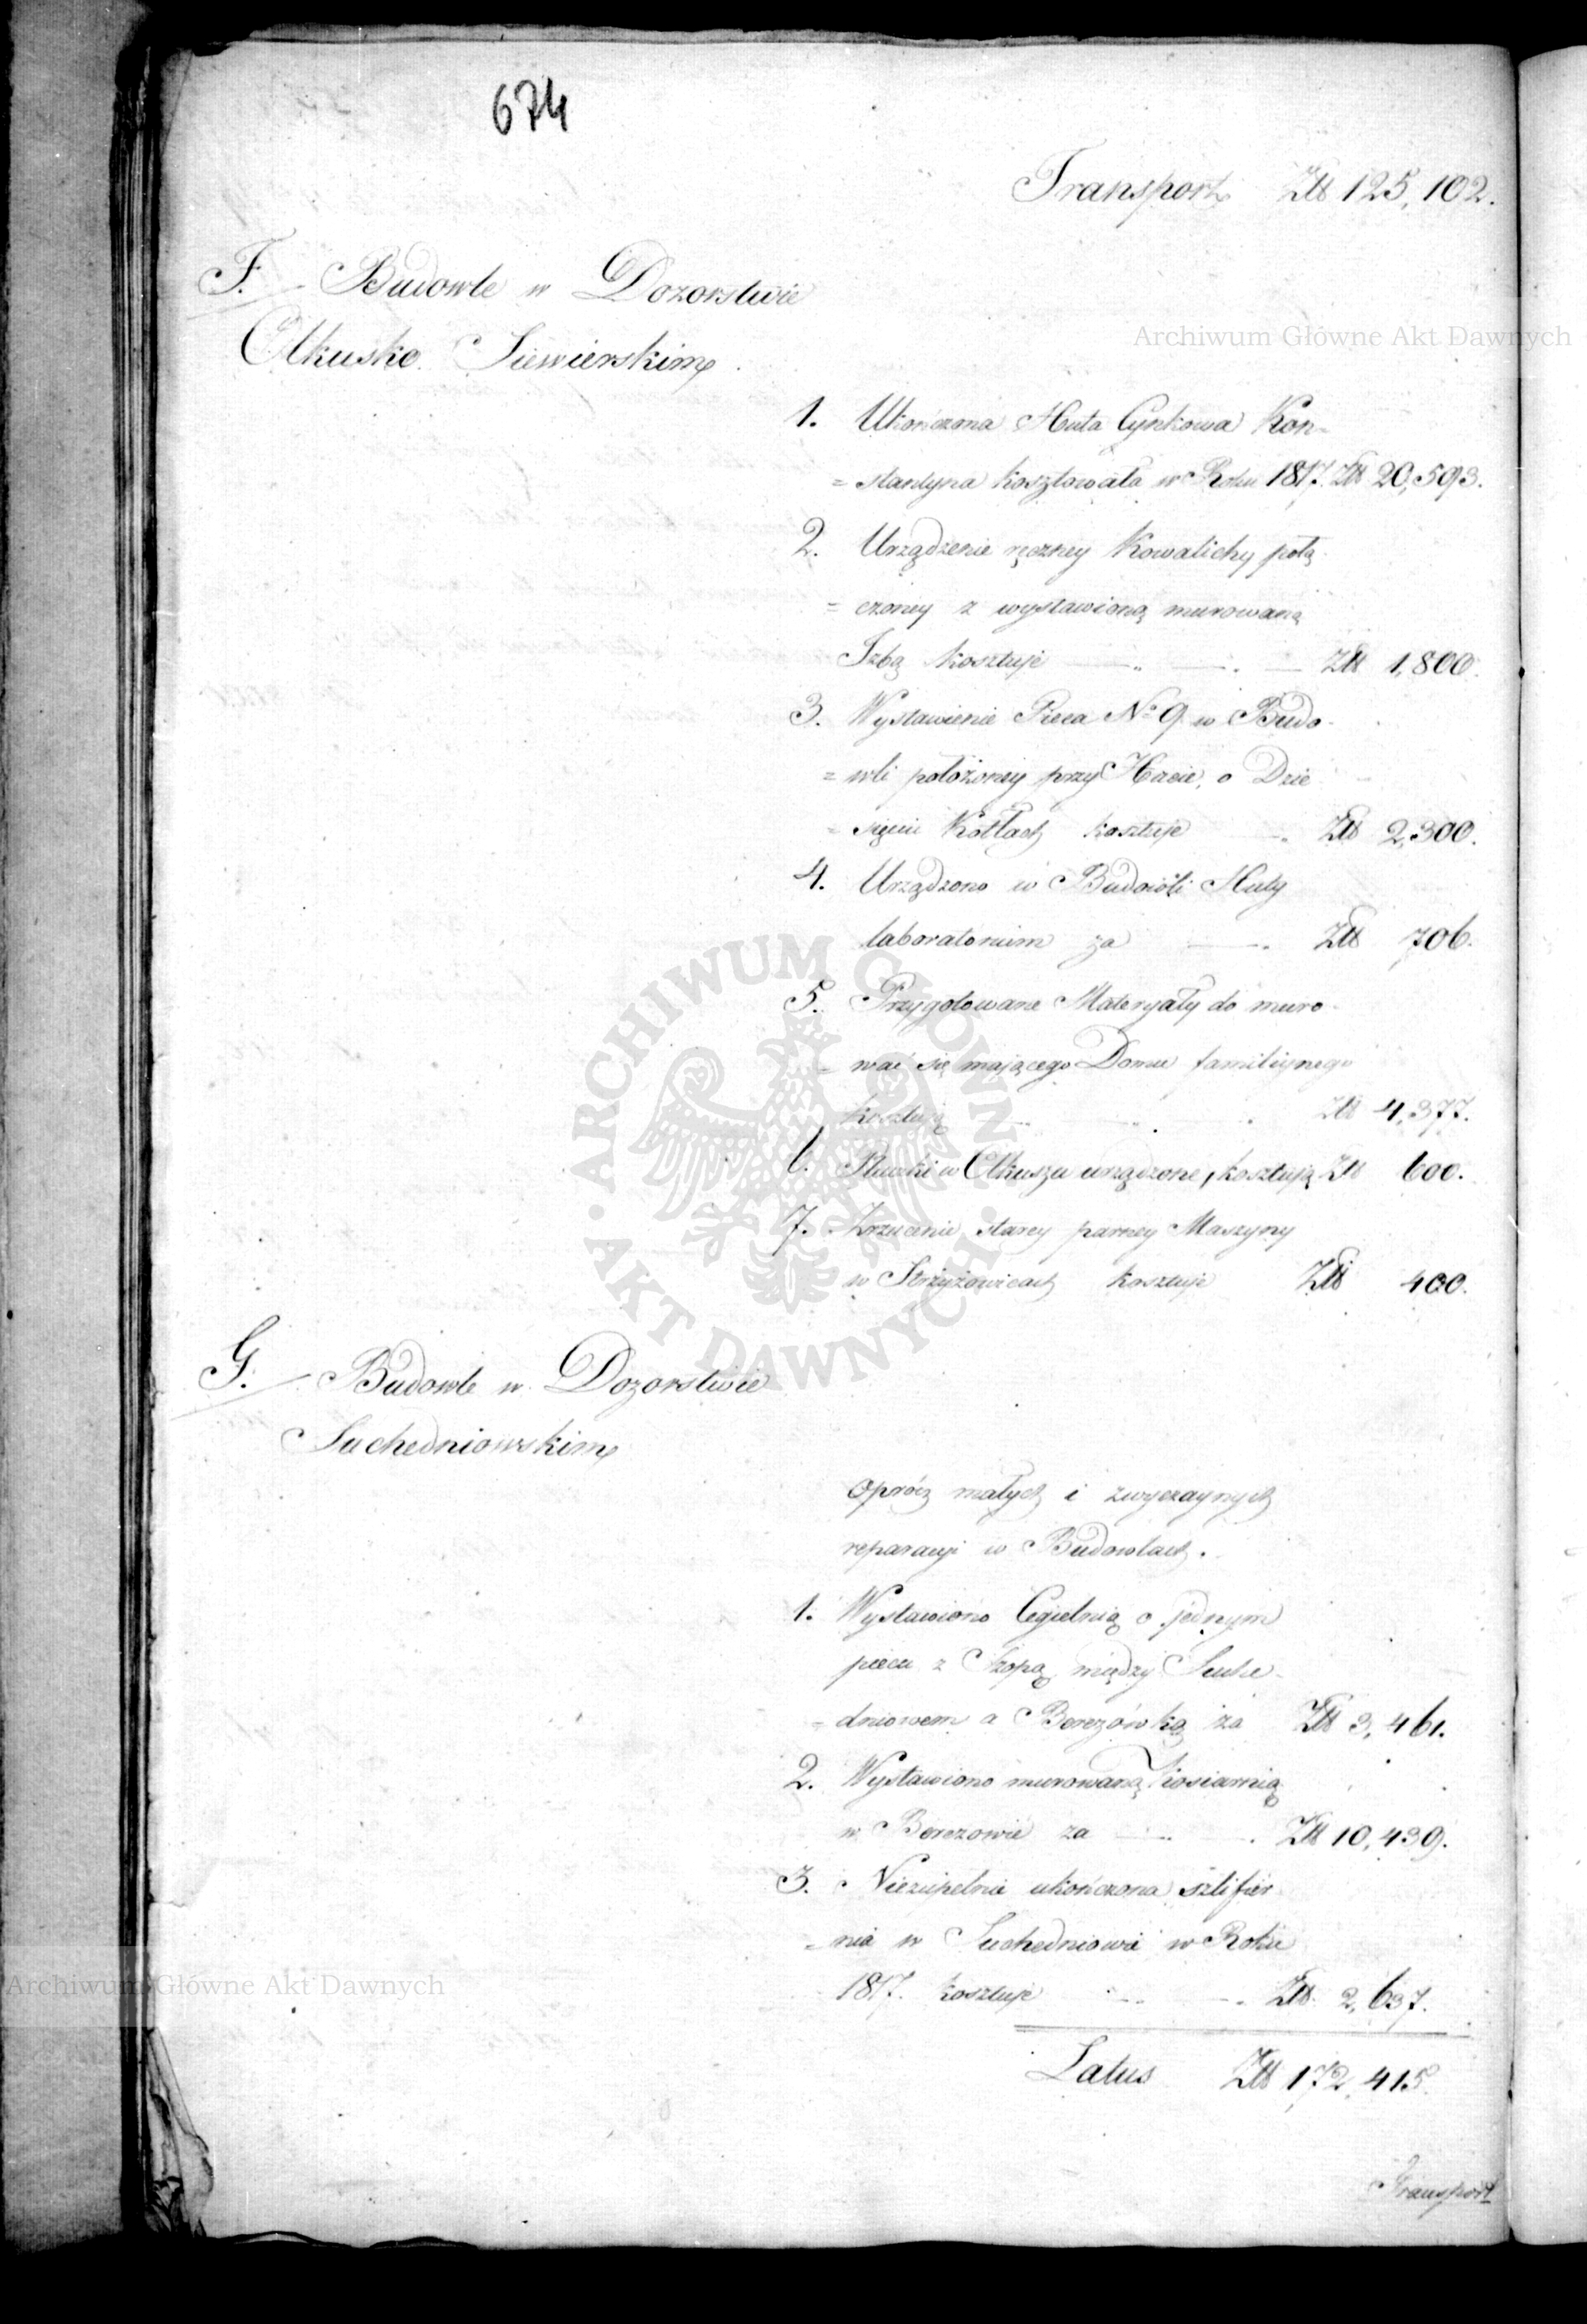 674
Transport Złł 125,102.
F. Budowle w Dozorstwie
Olkusko Siewierskim
1. Ukończona Huta Cynkowa Kon-
= stantyna kosztowała w Roku 1817. Złł 20,593.
2. Urządzenie ręczney Kowalichy połą
= czoney z wystawioną murowaną
Izbą kosztuje Złł 1,800.
3. Wystawienie Pieca No 9 w Budo-
= wli położoney przy Hucie, o Dzie
= sięciu Kotłach kosztuje Złł 2,300.
4. Urządzono w Budowli Huty
laboratorium za Złł 706.
5. Przygotowane Materyały do muro-
= wać się maiącego Domu familiynego
kosztują Złł 4,377.
6. Płuczki w Olkuszu urządzone, kosztują Złł 600.
7. Zrzucenie starey parney Maszyny
w Strzyżowicach kosztuje Złł 400.
G. Budowle w Dozorstwie
Suchedniowskim
oprócz małych i zwyczaynych
reparacyi w Budowlach.
1. Wystawiono Cegielnią o jednym
piecu z Szopą między Suche-
= dniowem a Berezówką za Złł 3,461.
2. Wystawiono murowaną Kosiarnią
w Berezowie za Złł 10,439.
3. Niezupełnie ukończona szlifier
= nia w Suchedniowie w Roku
1817. kosztuje Złł 2,637.
Latus Złł 172,415.
Transport
Archiwum Główne Akt Dawnych
ARCHIWUM GŁÓWNE · AKT DAWNYCH ·
Archiwum Główne Akt Dawnych